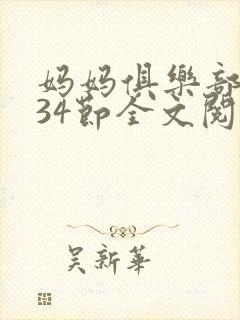 妈妈俱樂部
34節全文閱
吴新華